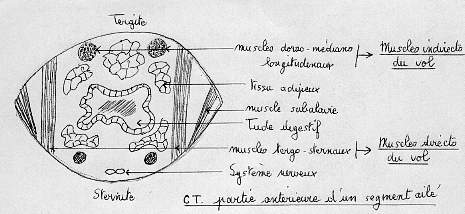 Tergite
muscles dorso-médians
longitudinaux
Muscles indirects
du vol
tissu adipeux
muscle subalaire
Tube digestif
muscles tergo-sternaux
Muscles directs
du vol
Système nerveux
Sternite
CT. partie antérieure d'un segment ailé